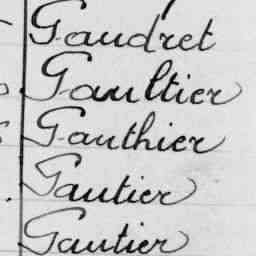 Gaudret
Gaultier
Gauthier
Gautier
Gautier